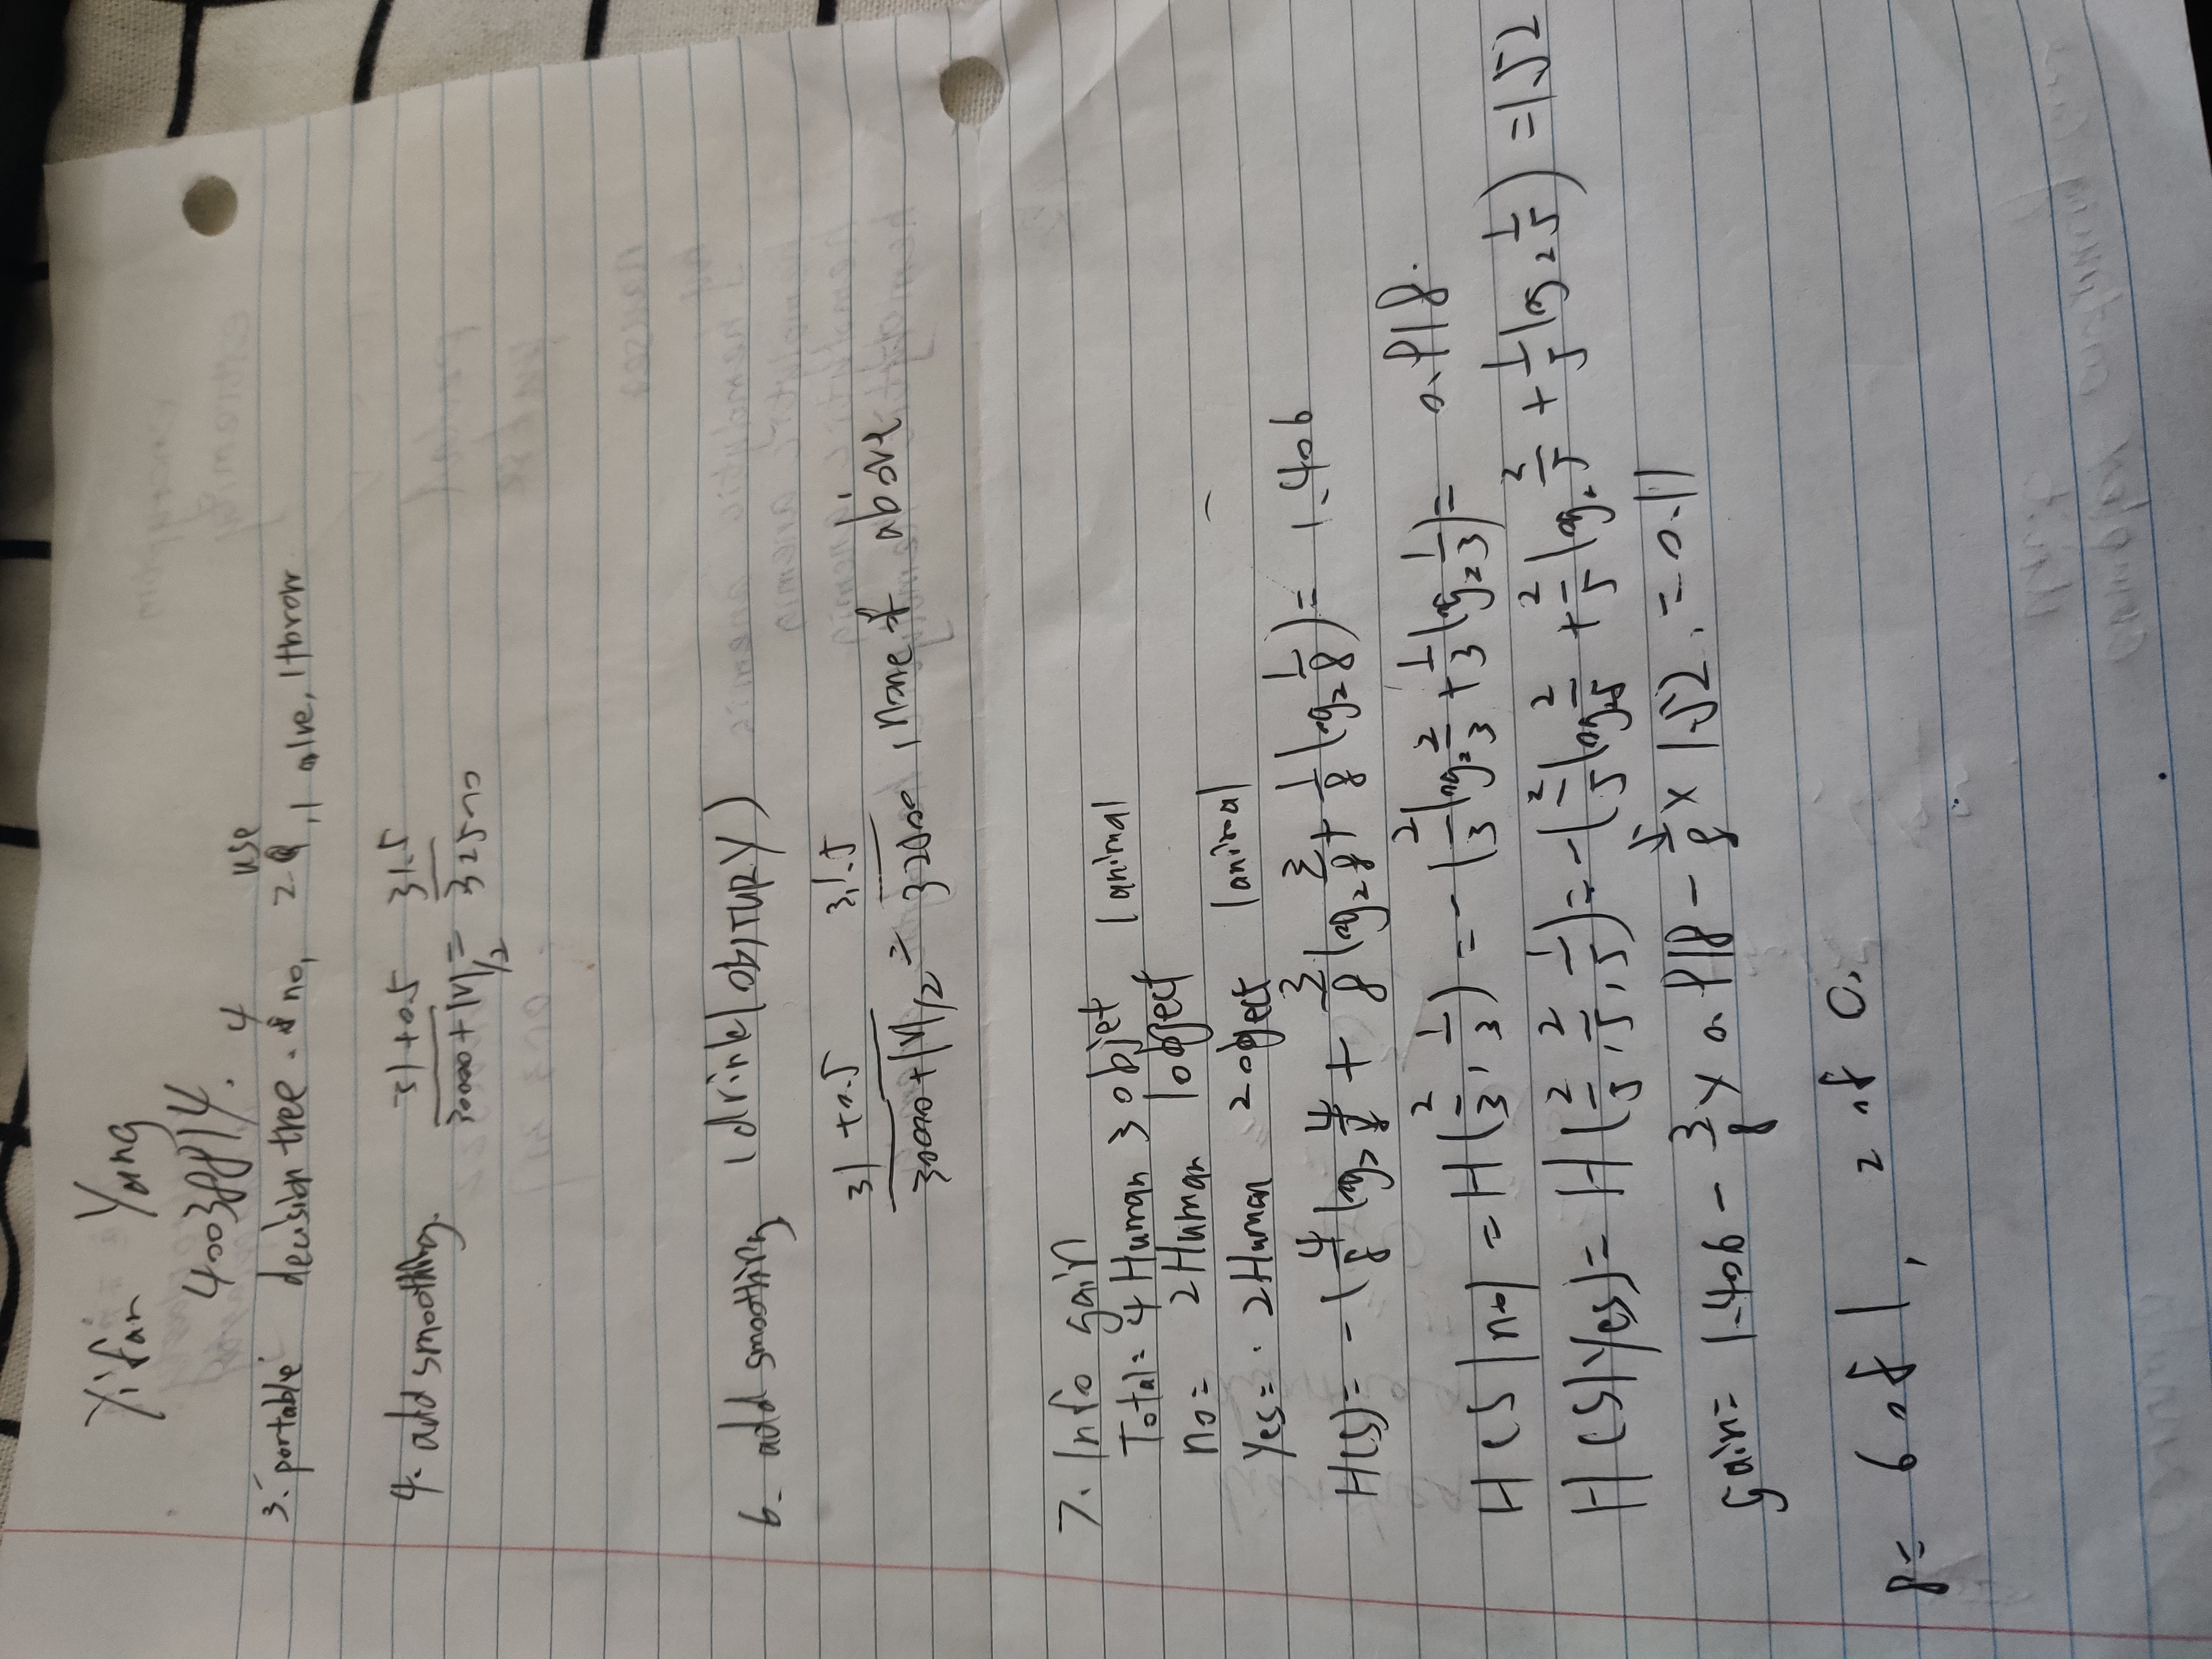 Yifan Yang
40038814.
4 use
3. portable decision tree. no, 2 , 1 alve, 1 throw
4. add smoothing. 31+0.5 / 30000+|V|/2 = 31.5 / 32500
6. add smoothing (drink|OBITURY)
31+0.5 / 30000+|V|/2 = 31.5 / 32500, none of above
7. Info gain
Total= 4 Human 3 objet 1 animal
no= 2 Human 1 object
Yes= 2 Human 2 object 1 animal
H(S)= -(4/8 log2 4/8 + 3/8 log2 3/8 + 1/8 log2 1/8)= 1.406
H(S|no) = H(2/3, 1/3) = -(2/3 log2 2/3 + 1/3 log2 1/3)= 0.918.
H(S|Yes)= H(2/5, 2/5, 1/5)= -(2/5 log2 2/5 + 2/5 log2 2/5 + 1/5 log2 1/5) = 1.52
gain= 1.406 - 3/8 x 0.918 - 5/8 x 1.52. = 0.11
8= 6 of 1, 2 of 0.